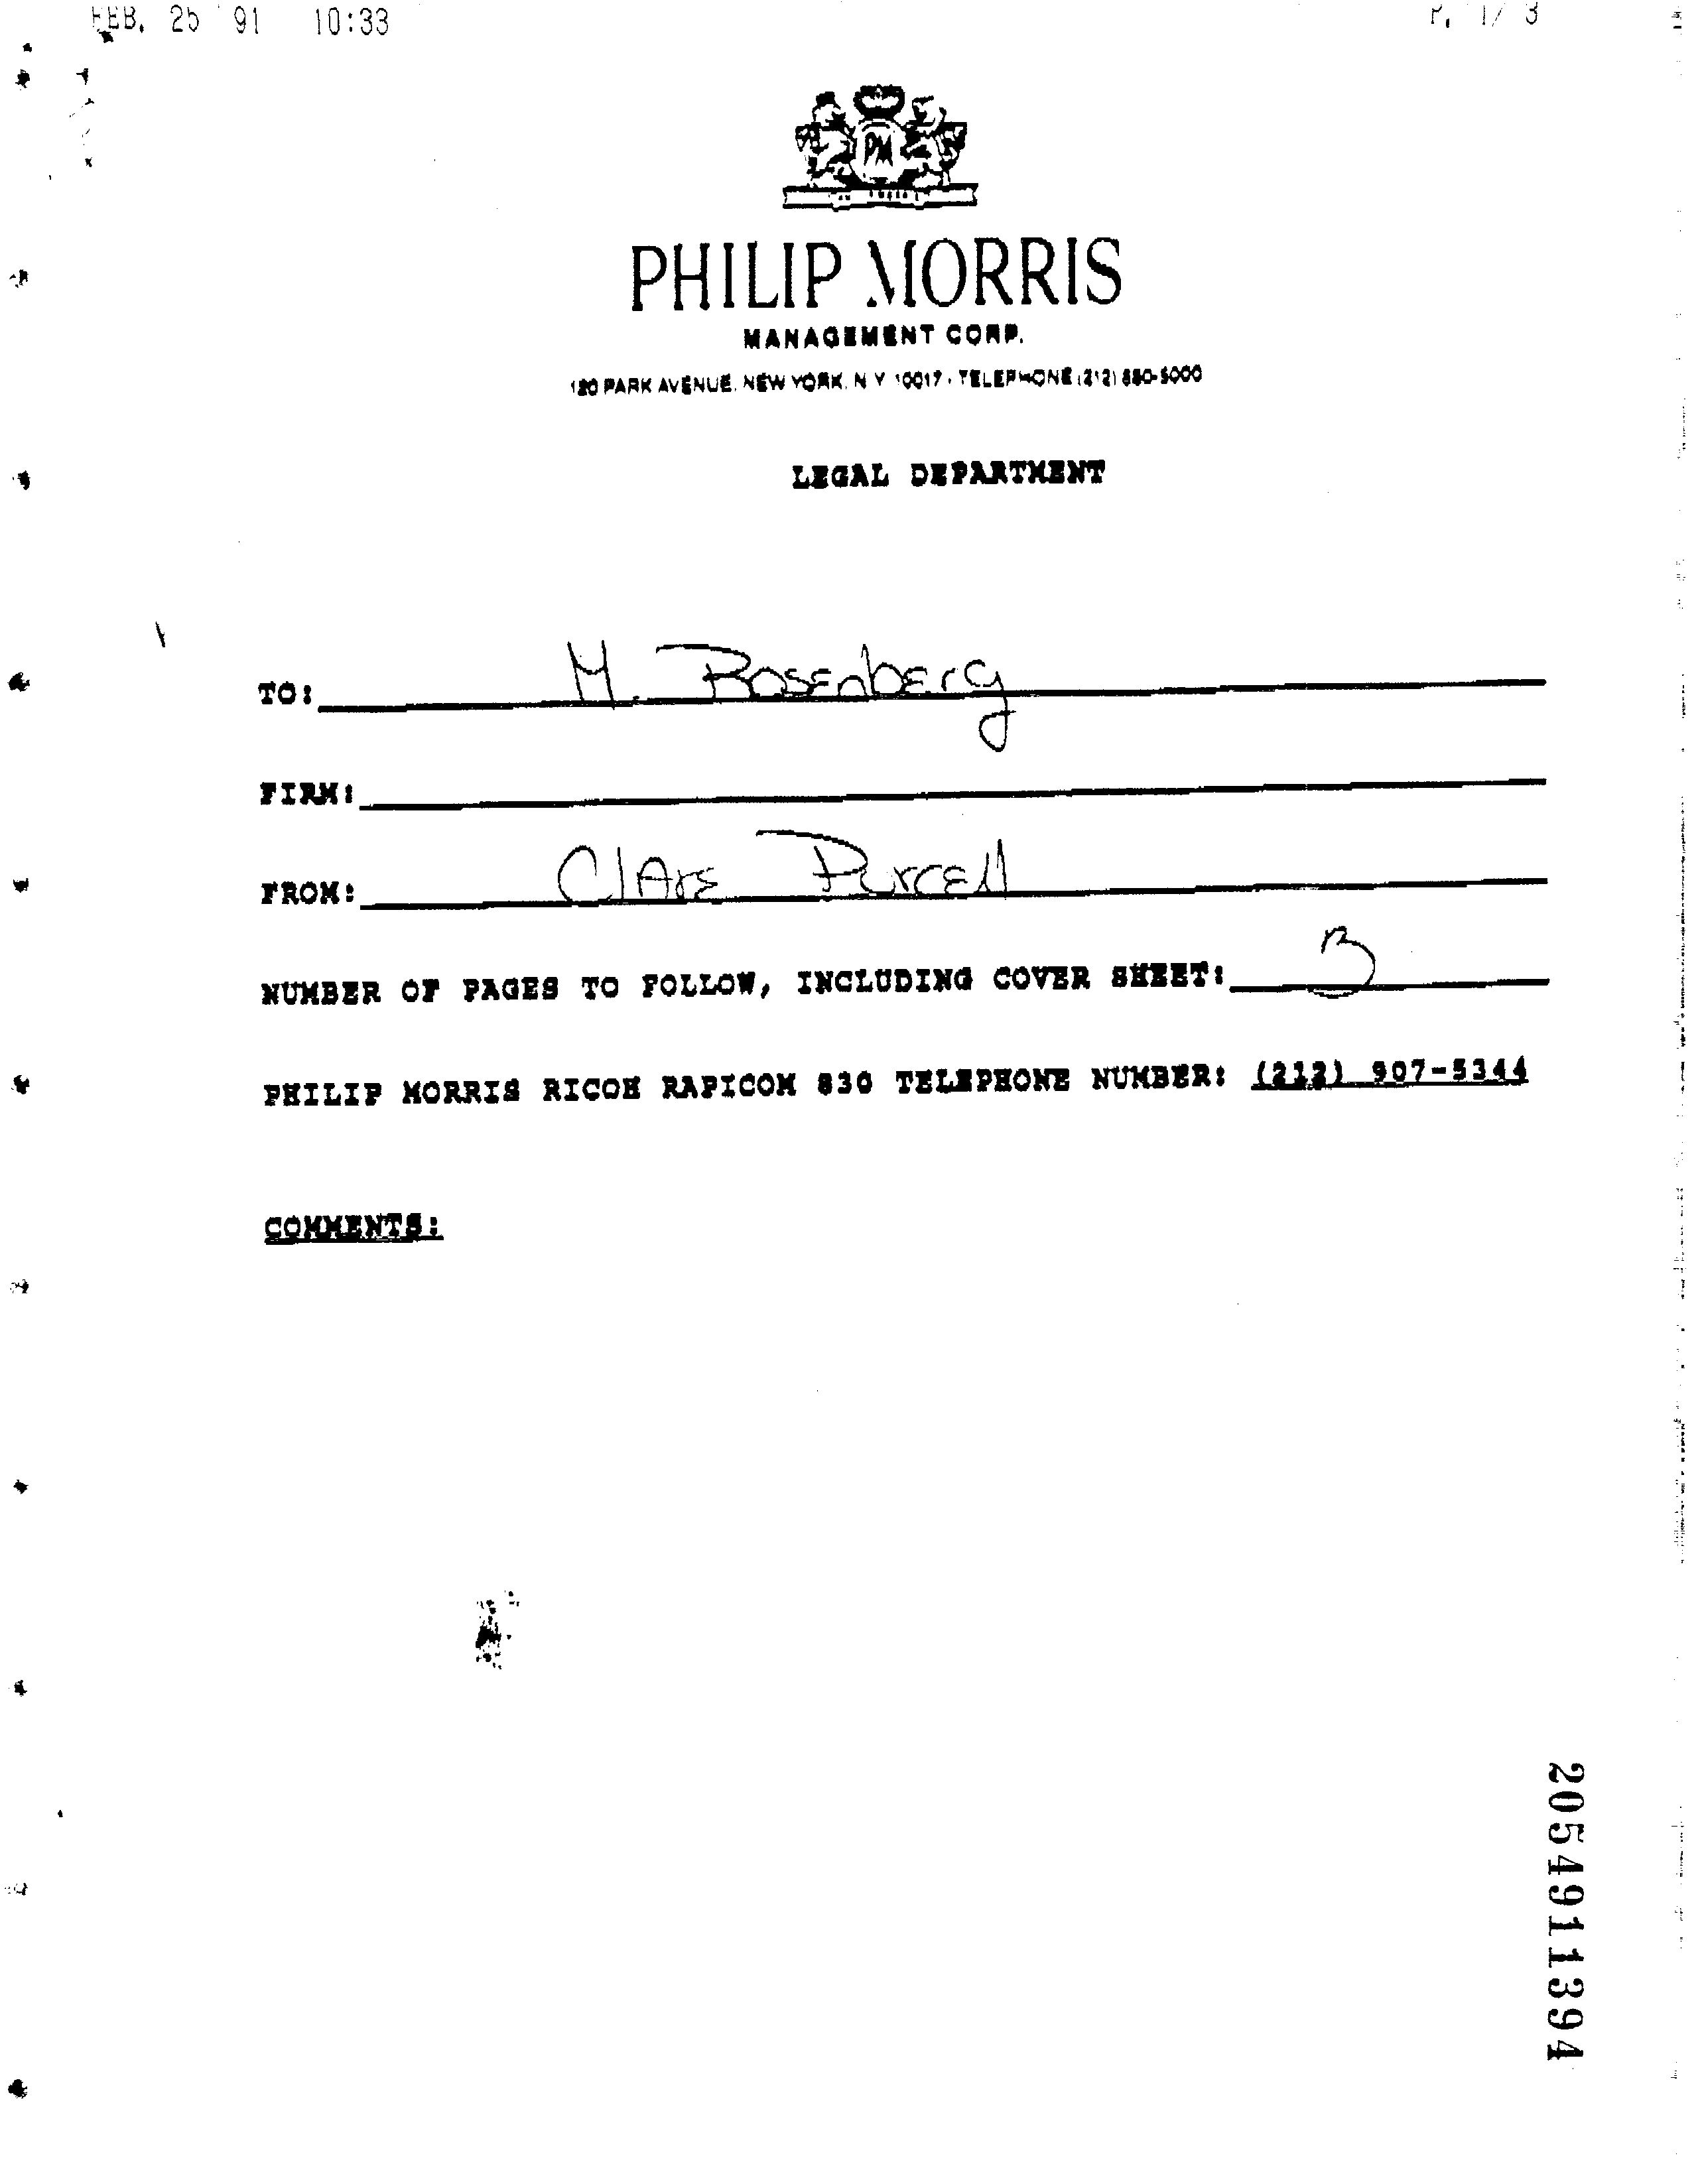 FEB. 25 '91 10:33 P. 1/ 3
PM
PHILIP MORRIS
MANAGEMENT CORP.
120 PARK AVENUE, NEW YORK, N.Y. 10017 · TELEPHONE (212) 880-5000
LEGAL DEPARTMENT
TO: M. Rosenberg
FIRM:
FROM: Clare Purcell
NUMBER OF PAGES TO FOLLOW, INCLUDING COVER SHEET: 3
PHILIP MORRIS RICOH RAPICOM 830 TELEPHONE NUMBER: (212) 907-5344
COMMENTS:
2054911394